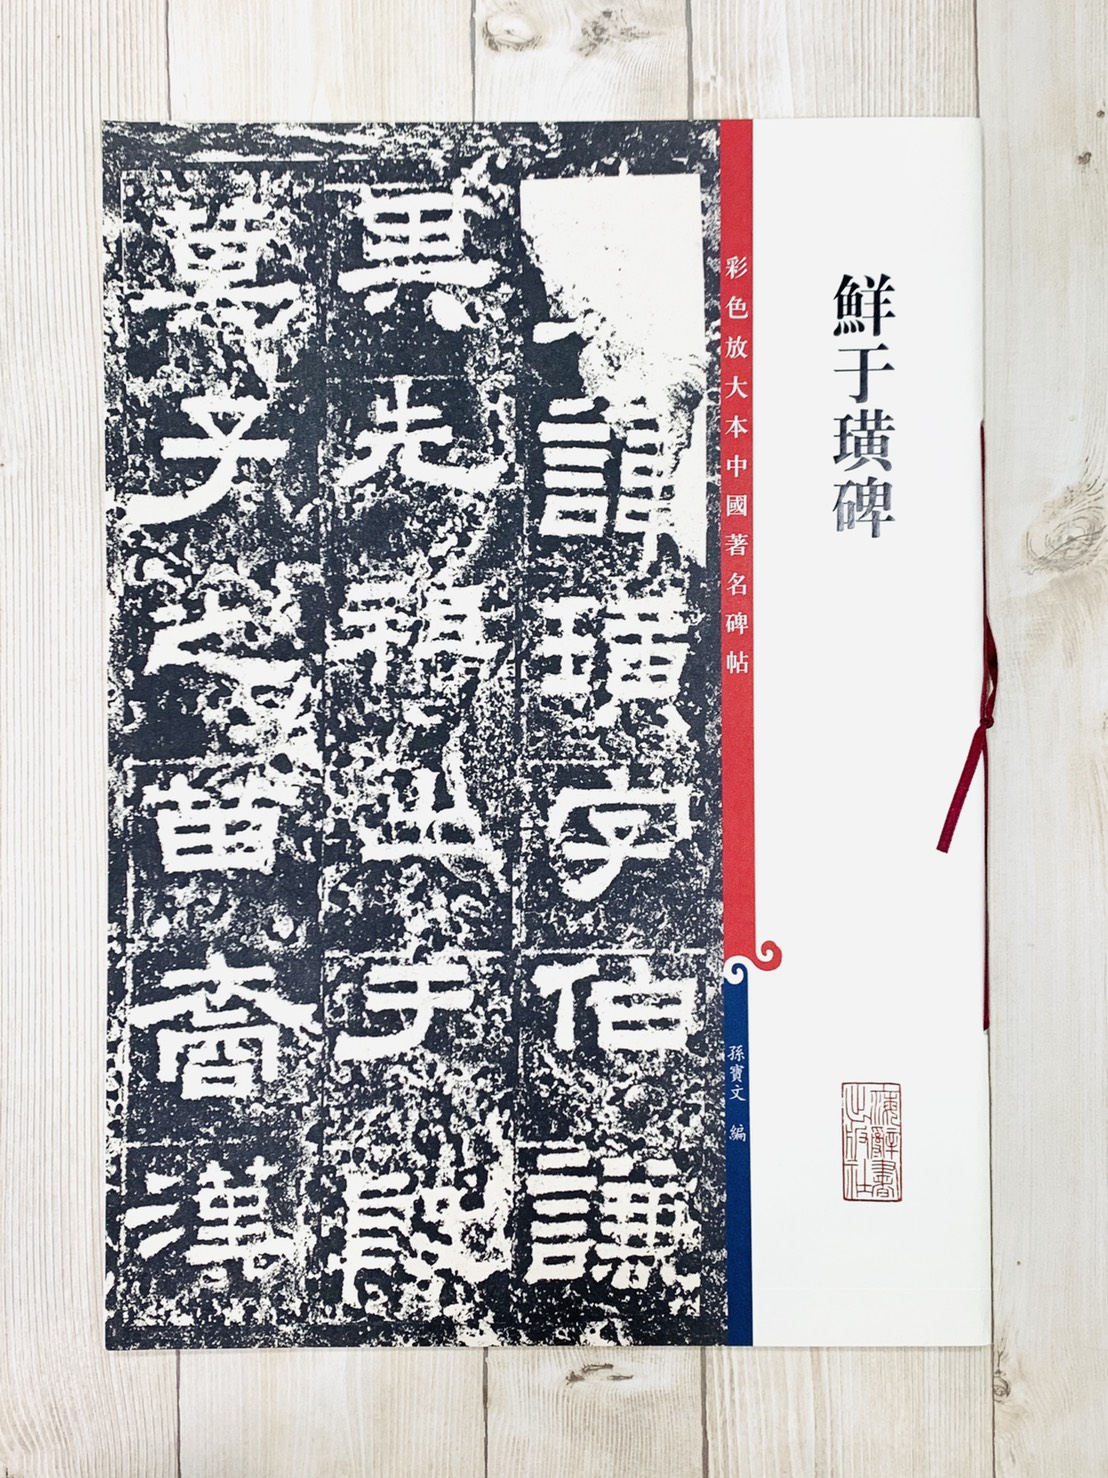 鮮于璜碑
上海辭書
出版社
彩色放大本中國著名碑帖
孫寶文 編
諱璜字伯謙
其先祖出于殷
箕子之苗裔漢